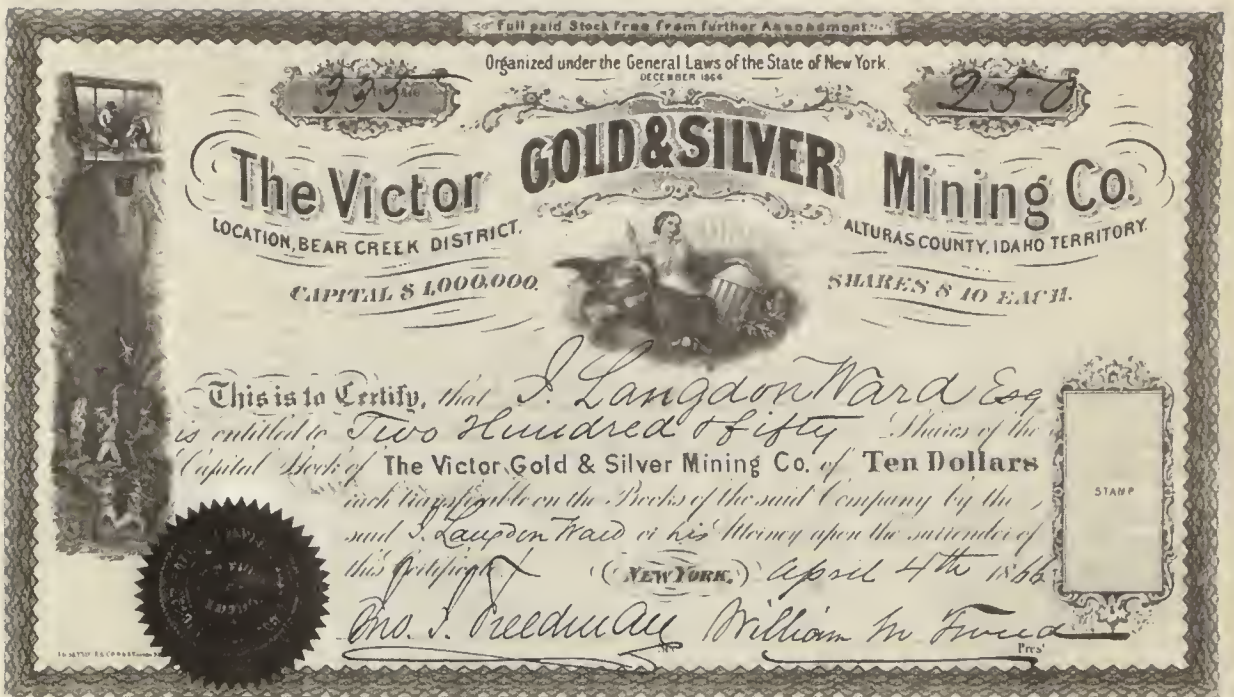 Full paid Stock Free from further Assessment
Organized under the General Laws of the State of New York.
DECEMBER 1864
335
250
The Victor GOLD & SILVER Mining Co.
LOCATION, BEAR CREEK DISTRICT.
ALTURAS COUNTY, IDAHO TERRITORY.
CAPITAL $ 1,000,000.
SHARES $ 10 EACH.
This is to Certify, that J. Langdon Ward Esq
is entitled to Two Hundred & fifty Shares of the
Capital Stock of The Victor Gold & Silver Mining Co. of Ten Dollars
each transferable on the Books of the said Company by the
said J. Langdon Ward or his Attorney upon the surrender of
this Certificate
NEW YORK, April 4th 1866
STAMP
Jno. J. Freedman William M Tweed
Pres't